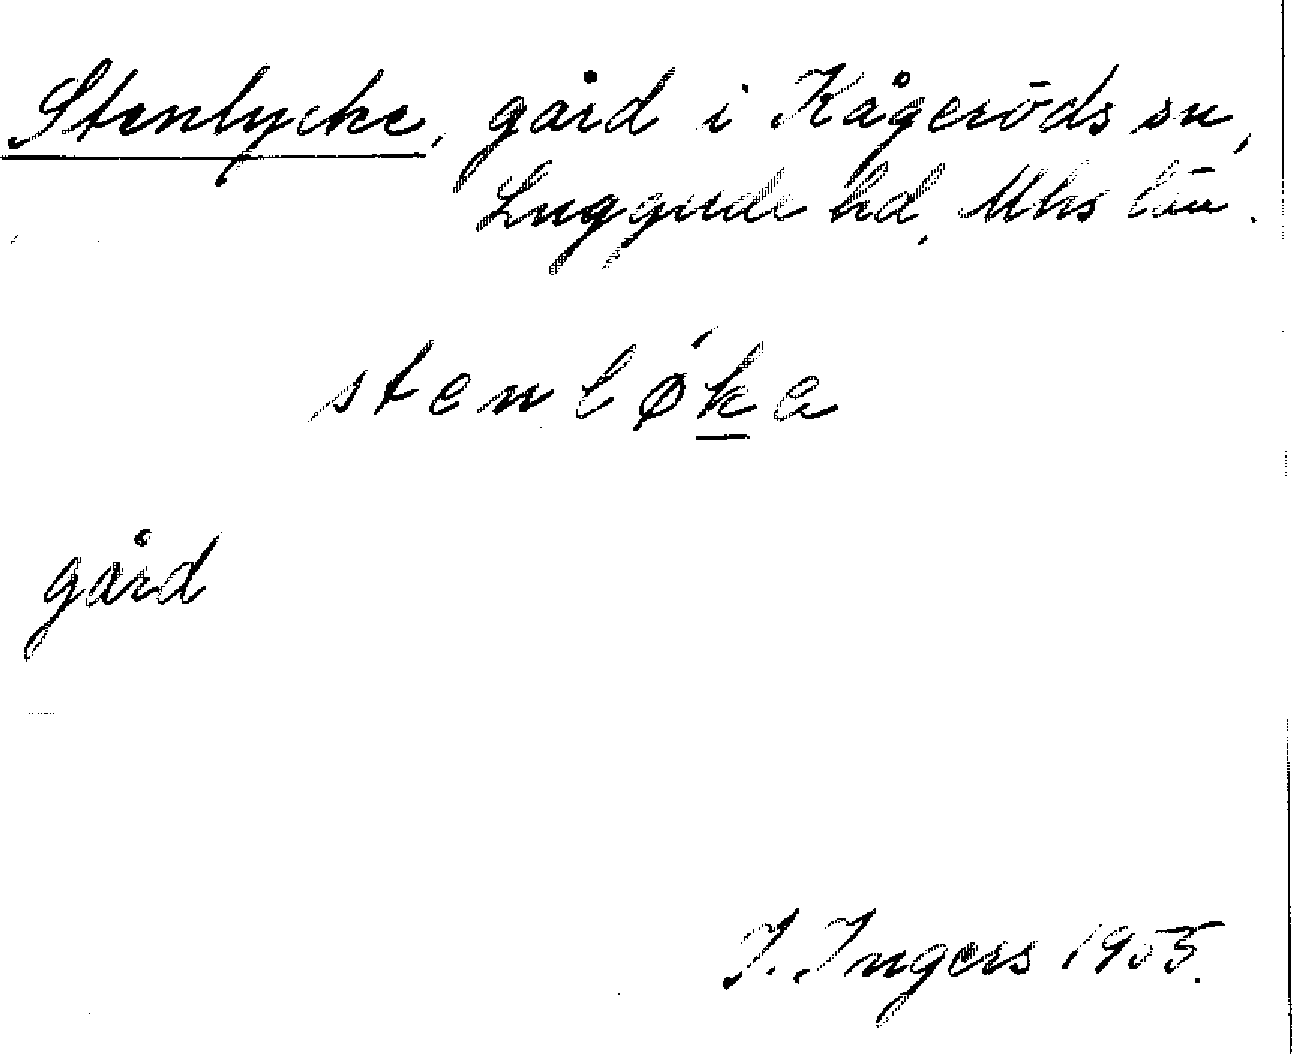 Stenlycke, gård i Kågeröds sn,
Luggude hd, Mhs län.
stenlǿka
gård
I. Ingers 1955.